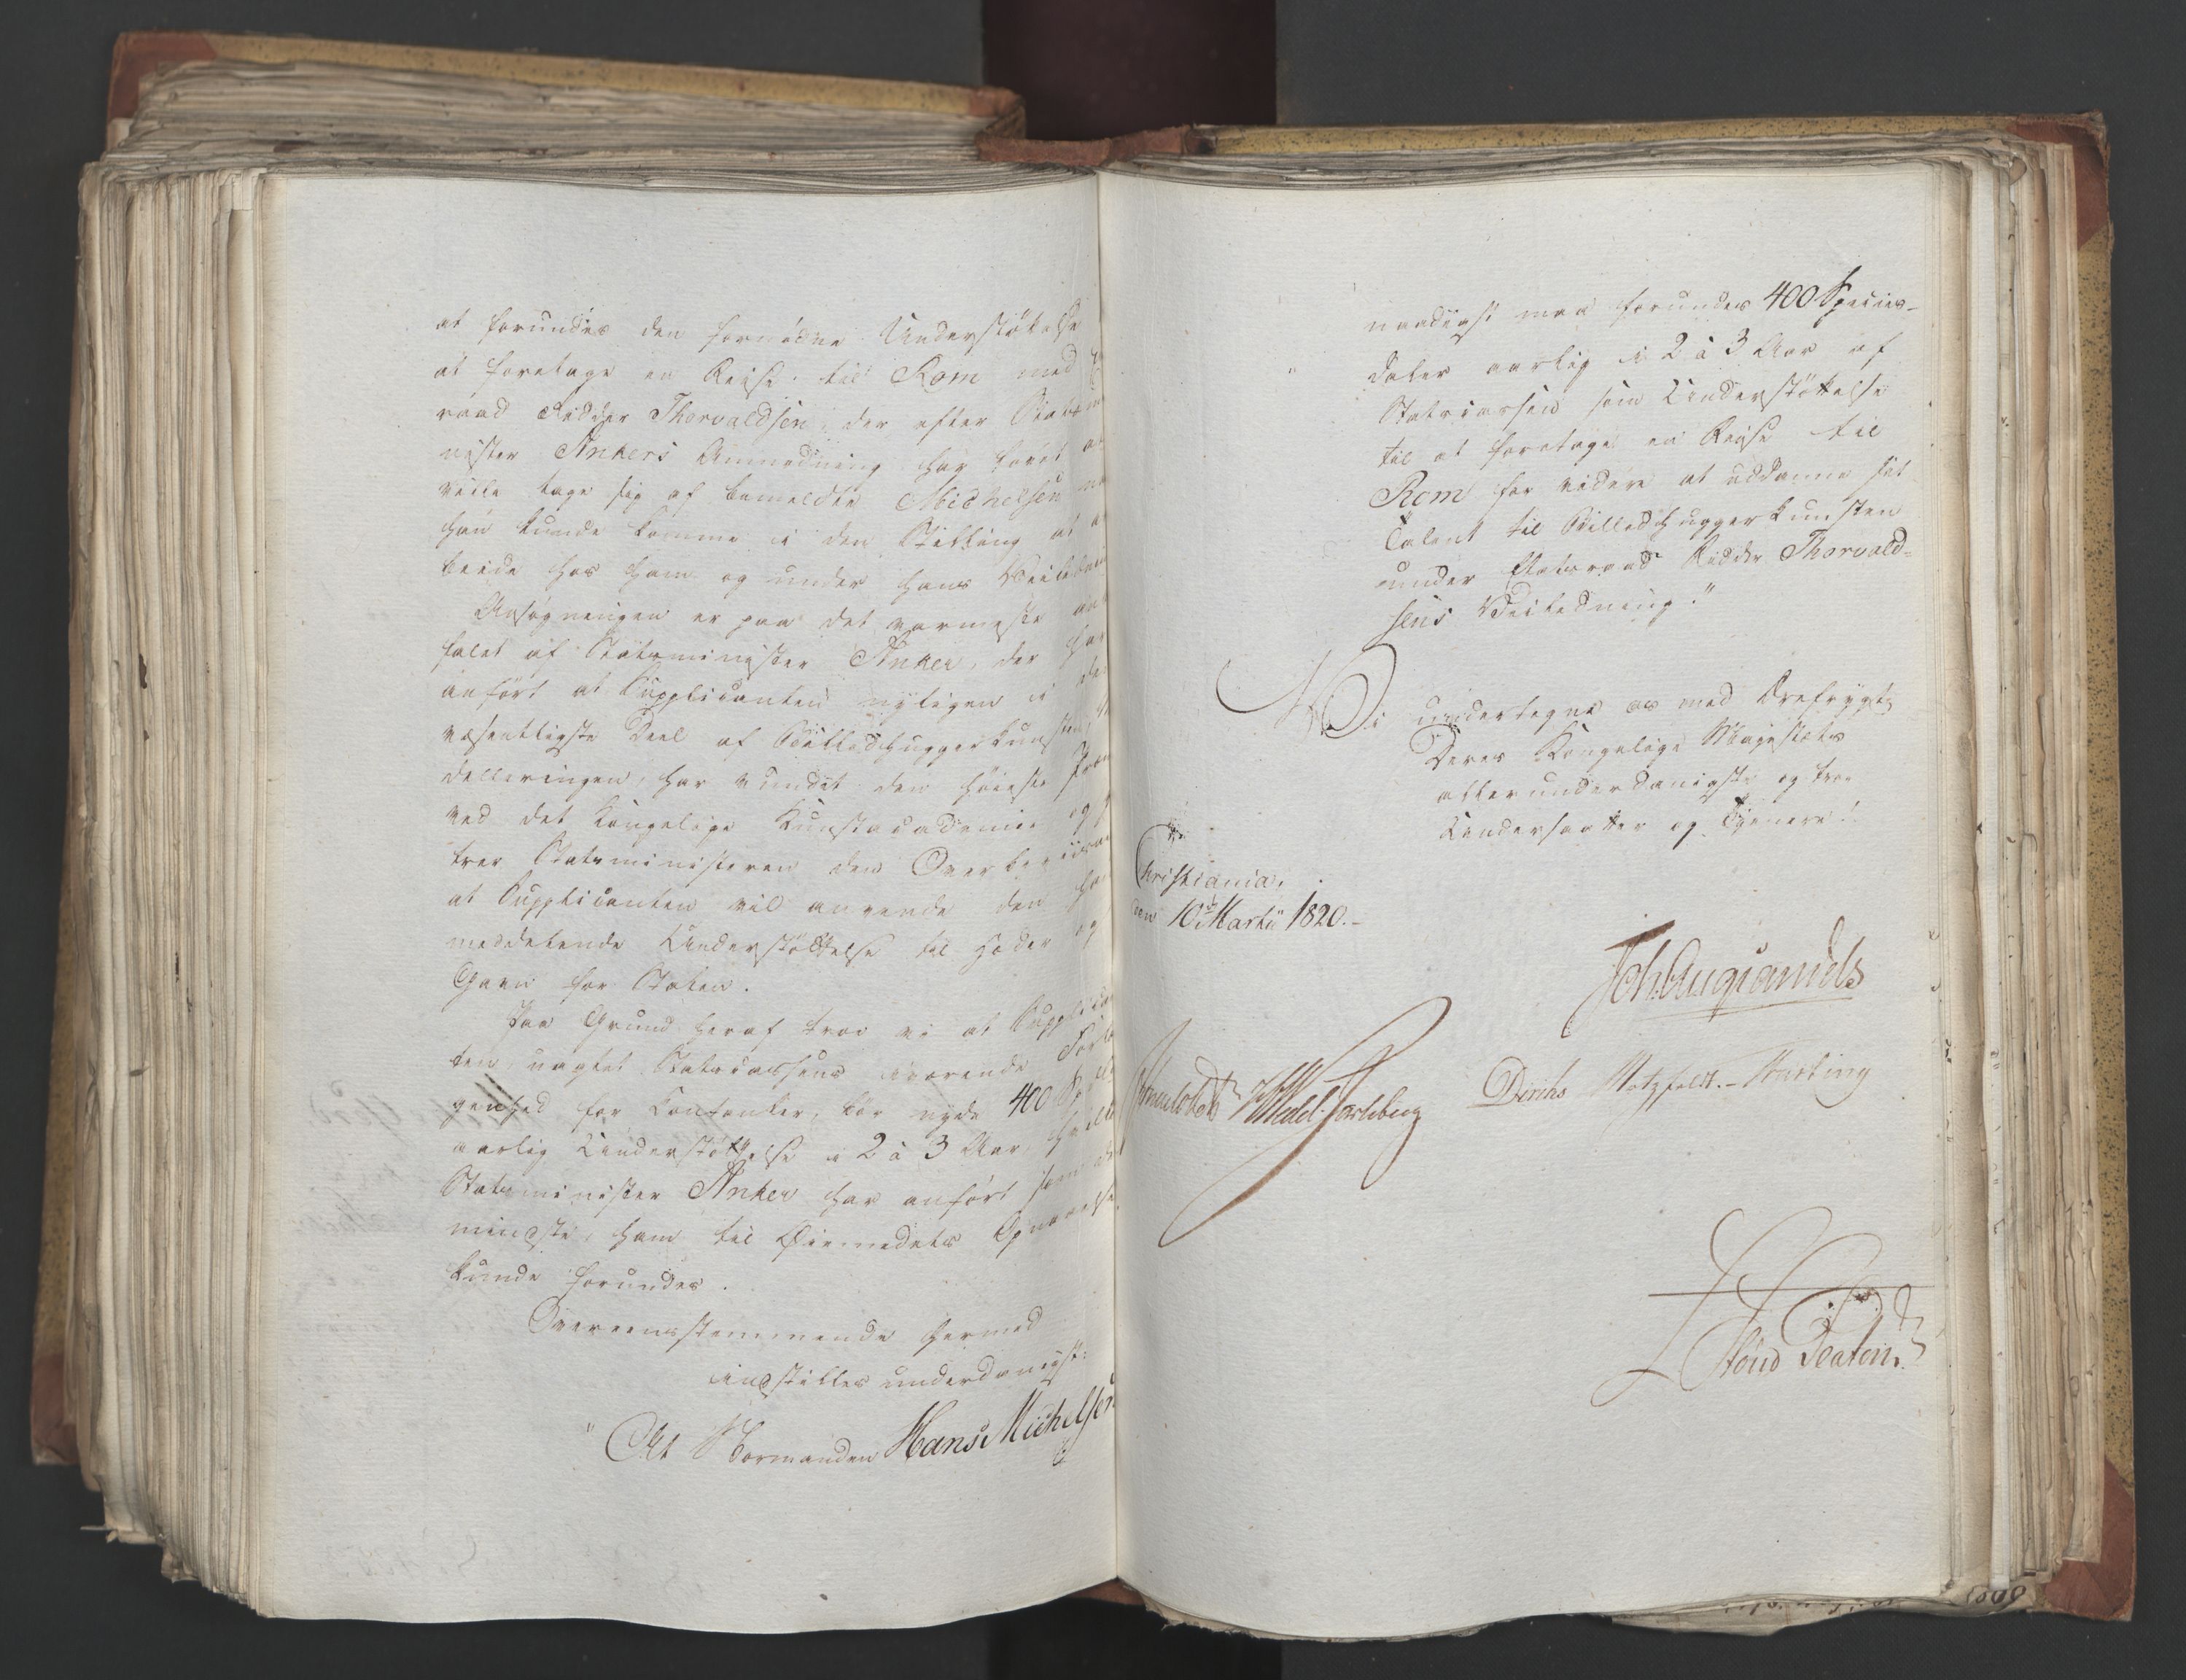 at forundes den fornødne Understøttelse
at foretage en Reise til Rom med
raad Ridder Thorvaldsen, der efter Statsmi
nister Ankers Anmodning har lovet at
ville tage sig af bemeldte Michelsen
han kunde komme i den Stilling at ar
beide hos ham og under hans Veiledni
Ansøgningen er paa det varmeste an
falet af Statsminister Anker, der har
anført at Supplicanten nyligen i den
væsentligste Deel af Billedhuggerkunsten,
delleringen, har vundet den høieste Præm
ved det kongelige Kunstacademie og
troer Statsministeren den Overbeviisn
at Supplicanten vil anvende den ham
meddelende Understøttelse til Hæder og
Gavn for Staten.
Paa Grund heraf troe vi at Supplican
ten, uagtet Statscassens værende Forle
genhed for Contanter, bør nyde 400 Spdlr
aarlig Understøttelse i 2 à 3 Aar, hvilke
Statsminister Anker har anført som det
mindste, ham til Øiemedets Opnaaelse
kunde forundes.
Overeensstemmende hermed
indstilles underdanigst:
"At Normanden Hans Michelsen
naadigst maa forundes 400 Species-
daler aarlig i 2 à 3 Aar af
Statscassen som Understøttelse
til at foretage en Reise til
Rom for videre at uddanne sit
Talent til Billedhuggerkunsten
under Etatsraad Ridder Thorvald-
sens Veiledning."
Vi undertegne os med Ærefrygt,
Deres Kongelige Majestæts
allerunderdanigste og troe
Undersaatter og Tjenere!
Christiania,
den 10de Martii 1820.-
Joh. Aug. Sandels
Sommerhielm HWedel-Jarlsberg Diriks Motzfeldt.- Fasting
Stoud Platou.